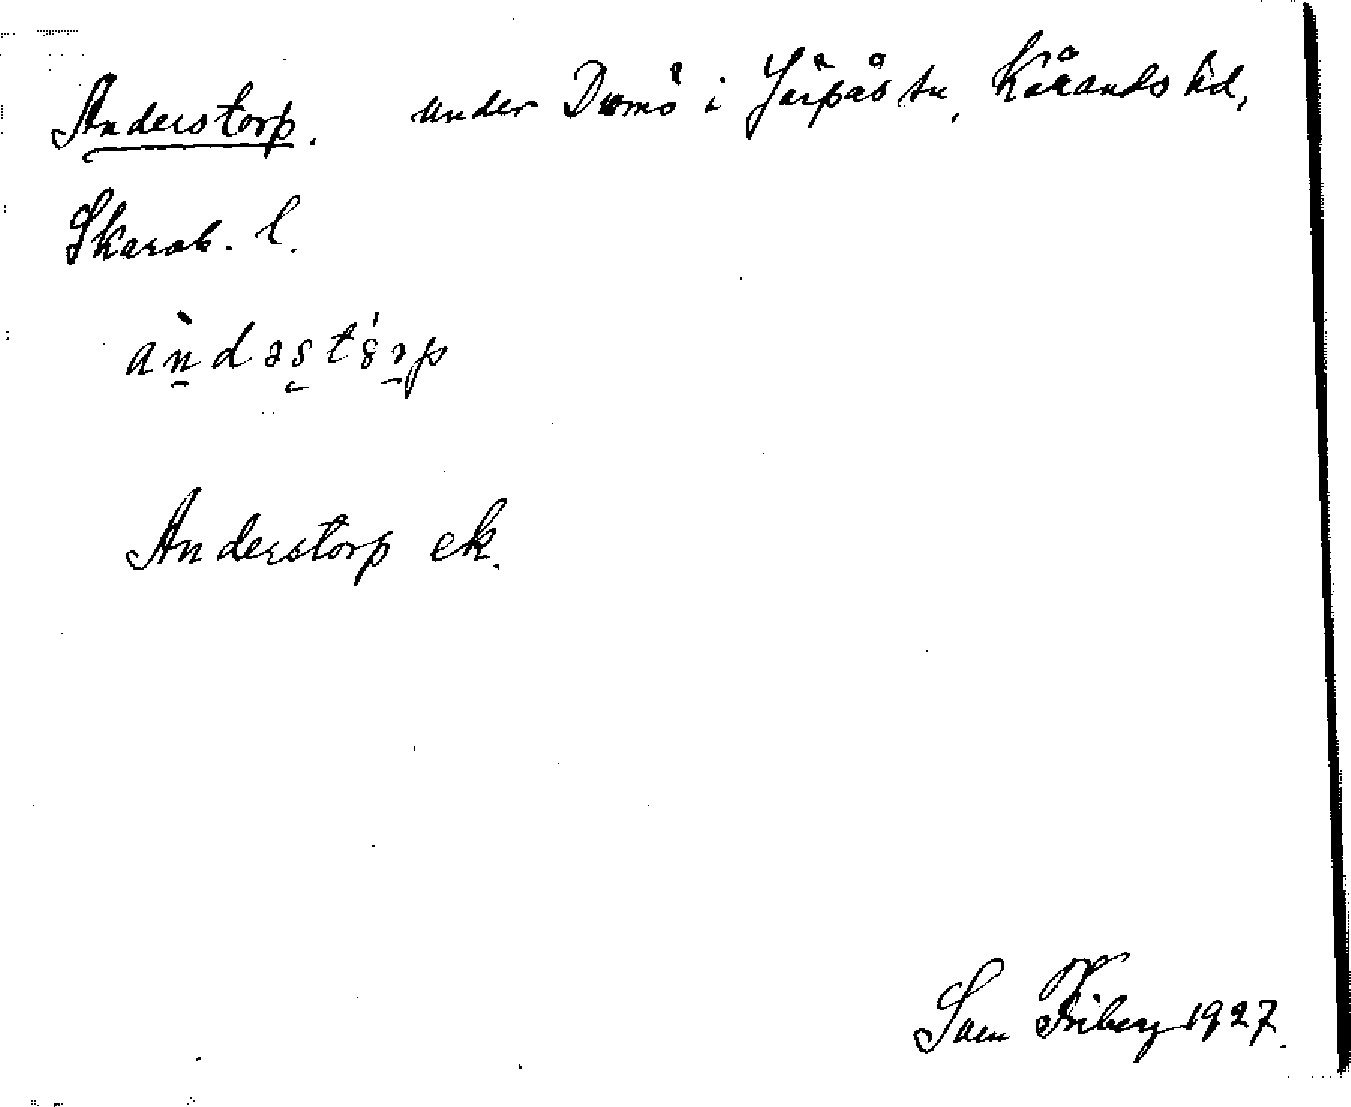 Anderstorp. under Damö i Järpås sn, Kållands hd,
Skarab. l.
àndəsts̍ɔp
Anderstorp ek.
Sven Friberg 1927.